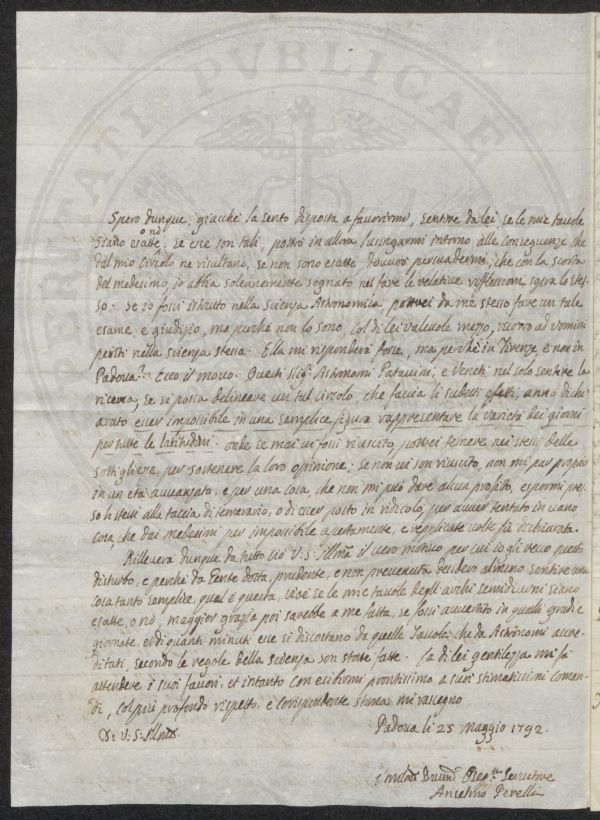 Spero dunque, giacchè la sento disposta a favorirmi, sentire da lei se le mie tavole
siano esatte o nò; se esse son tali, potrò in allora lusingarmi intorno alle conseguenze che
dal mio Circolo ne risultano, se non sono esatte dovrò persuadermi, che con la scorta
del medesimo, io abbia solennemente sognato nel fare le relative riflessioni sopra lo stes-
so. Se io fossi istrutto nella scienza Astronomica, potrei da me stesso fare un tale
esame e giudizio, ma perchè non lo sono, col di lei valevole mezzo, ricorro ad uomini
periti nella scienza stessa. Ella mi risponderà forse, ma perchè in Firenze, e non in
Padova? Ecco il motivo. Questi Sig.ri Astronomi Patavini, e Veneti nel solo sentire la
ricerca, se si possa delineare un tal circolo, che faccia li sudetti effetti, anno dichi
arato esser impossibile in una semplice figura rappresentare la varietà dei giorni
per tutte le latitudini. onde se mai vi fossi riuscito, potrei temere nei stessi delle
sottigliezze, per sostenere la loro opinione; se non vi son riuscito, non mi par proprio
in un età avanzata, e per una cosa, che non mi può dare alcun profitto, espormi pres-
so li stessi alla taccia di temerario, o di esser posto in ridicolo, per avver tentato in vano
cosa, che dai medesimi per impossibile apertamente, e replicate volte fù dichiarata.
Rilleverà dunque da tutto ciò V: S: Illma il vero motivo per cui io gli reco questo
disturbo, e perchè da Gente dotta, prudente, e non prevenuta desidero almeno sentire una
cosa tanto semplice, qual'è questa, cioè se le mie tavole degli archi semidiurni siano
esatte, o nò, maggior grazia poi sarebbe a me fatta, se fossi avvertito in quelli gradi e
giornate, et di quanti minuti esse si discostano da quelle Tavole, che da Astronomi accre-
ditati, secondo le regole della scienza son state fatte. La di lei gentilezza mi fà
attendere i suoi favori, et intanto con esibirmi prontissimo a suoi stimatissimi coman-
di, col più profondo rispetto, e corispondente stima mi rassegno
Di V: S: Illma
Padova li 25 Maggio 1792.
Servitore
Anselmo
PVBLICAE